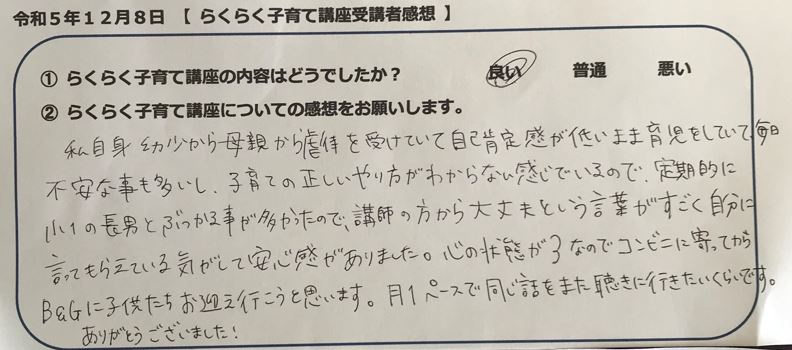 令和5年12月8日 【 らくらく子育て講座受講者感想 】
① らくらく子育て講座の内容はどうでしたか？ 良い 普通 悪い
② らくらく子育て講座についての感想をお願いします。
私自身 幼少から母親から虐待を受けていて自己肯定感が低いまま育児をしていて、毎日
不安な事も多いし、子育ての正しいやり方がわからない感じでいるので、定期的に
小1の長男とぶつかる事が多かったので、講師の方から大丈夫という言葉がすごく自分に
言ってもらえている気がして安心感がありました。心の状態が3なのでコンビニに寄ってから
B&Gに子供たちお迎え行こうと思います。月1ペースで同じ話をまた聴きに行きたいくらいです。
ありがとうございました！